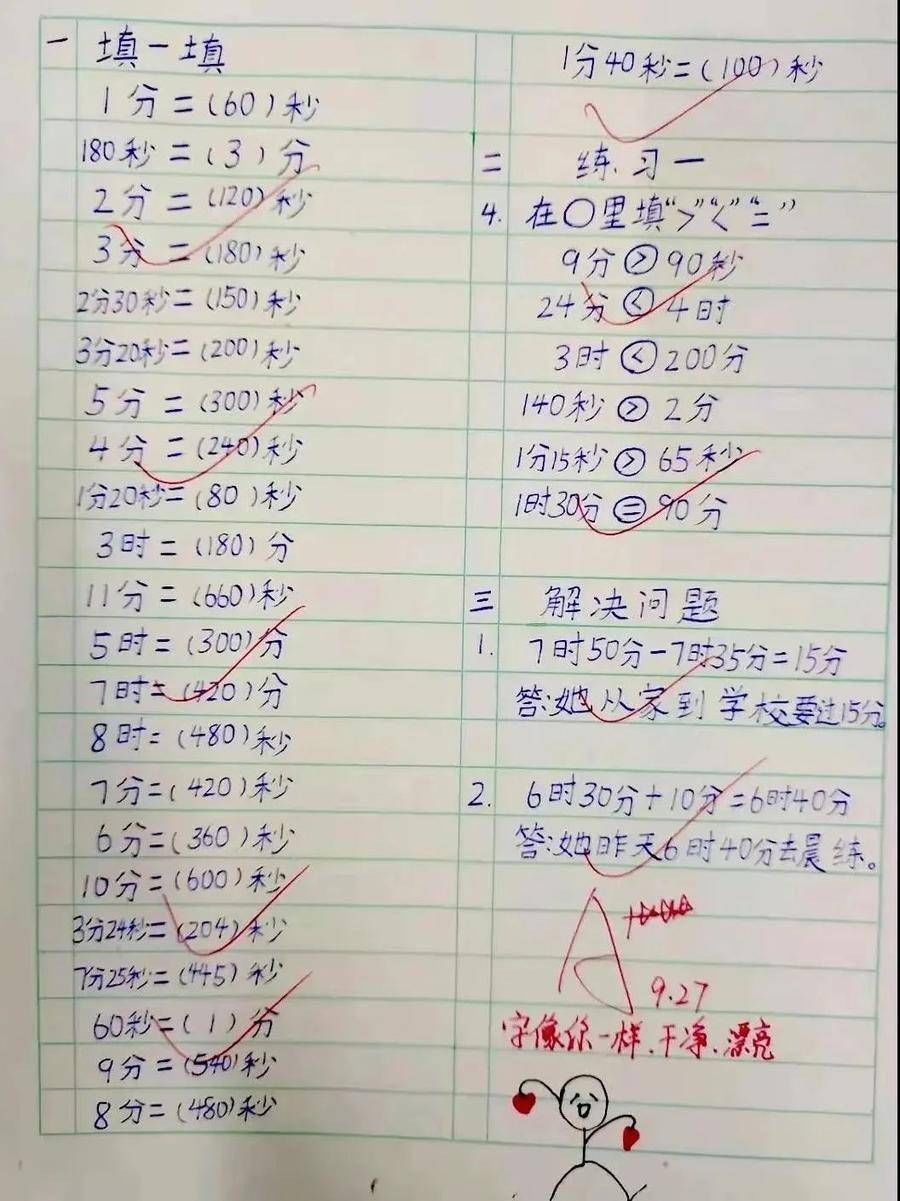 一 填一填
1分=(60)秒
180秒=(3)分
2分=(120)秒
3分=(180)秒
2分30秒=(150)秒
3分20秒=(200)秒
5分=(300)秒
4分=(240)秒
1分20秒=(80)秒
3时=(180)分
11分=(660)秒
5时=(300)分
7时=(420)分
8时=(480)秒
7分=(420)秒
6分=(360)秒
10分=(600)秒
3分24秒=(204)秒
7分25秒=(445)秒
60秒=(1)分
9分=(540)秒
8分=(480)秒
1分40秒=(100)秒
二 练习一
4. 在○里填“>”“<”“=”
9分>90秒
24分<4时
3时<200分
140秒>2分
1分15秒>65秒
1时30分=90分
三 解决问题
1. 7时50分-7时35分=15分
答:她从家到学校要过15分。
2. 6时30分+10分=6时40分
答:她昨天6时40分去晨练。
A+
9.27
字像你一样、干净、漂亮